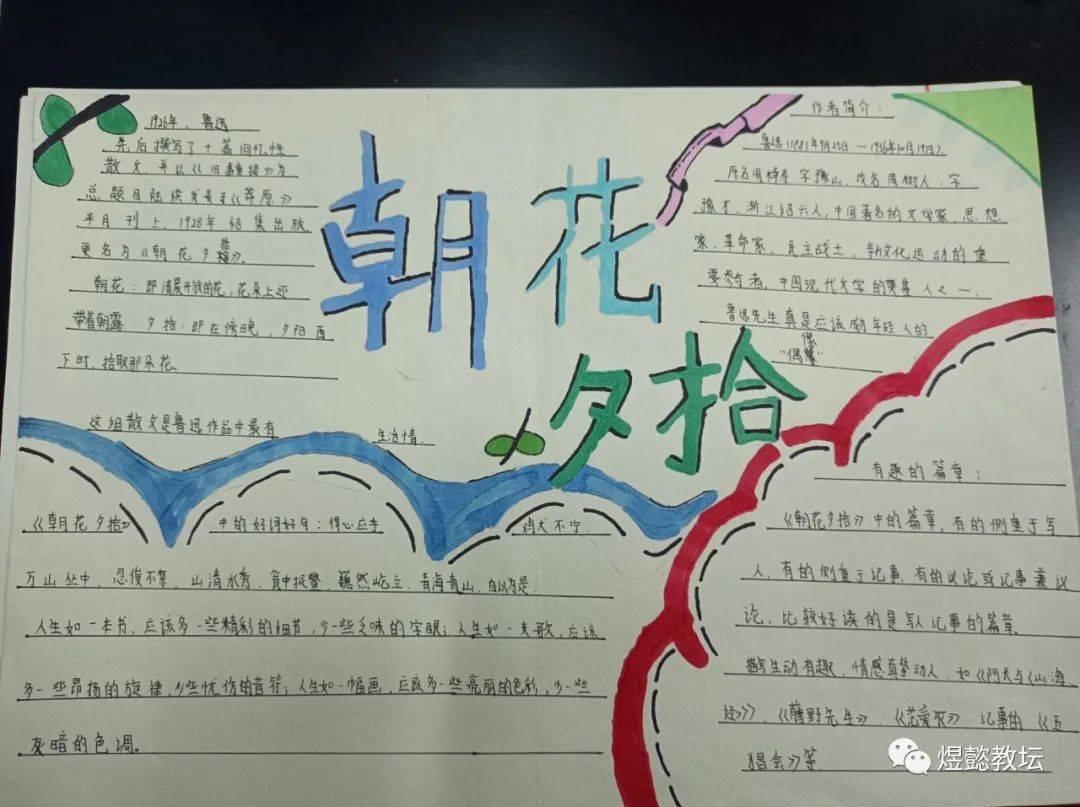 朝花
夕拾
1926年、鲁迅
先后撰写了十篇回忆性
散文并以《旧事重提》为
总题目陆续发表于《莽原》
半月刊上,1928年结集出版,
更名为《朝花夕拾》。
朝花:即清晨开放的花,花朵上还
带着朝露.夕拾:即在傍晚,夕阳西
下时,拾取那朵花。
这组散文是鲁迅作品中最有
生活情.
作者简介:
鲁迅(1881年9月25日—1936年10月19日)
原名周樟寿,字豫山,改名周树人,字
豫才,浙江绍兴人,中国著名的文学家,思想
家,革命家,民主战士,新文化运动的重
要参与者,中国现代文学的奠基人之一.
鲁迅先生真是应该成为年轻人的
“偶像”
《朝花夕拾》中的好词好句:得心应手 鸡犬不宁.
万山丛中,忍俊不禁,山清水秀,瓮中捉鳖,巍然屹立,青海青山,自以为是.
人生如一本书,应该多一些精彩的细节,少一些乏味的字眼;人生如一支歌,应该
多一些昂扬的旋律,少些忧伤的音符;人生如一幅画,应该多一些亮丽的色彩,少一些
灰暗的色调。
有趣的篇章:
《朝花夕拾》中的篇章,有的侧重于写
人,有的侧重于记事,有的议论或记事兼议
论,比较好读的是写人记事的篇章。
描写生动有趣,情感真挚动人,如《阿长与《山海
经》》,《藤野先生》、《范爱农》记事的《五
猖会》等
煜懿教坛